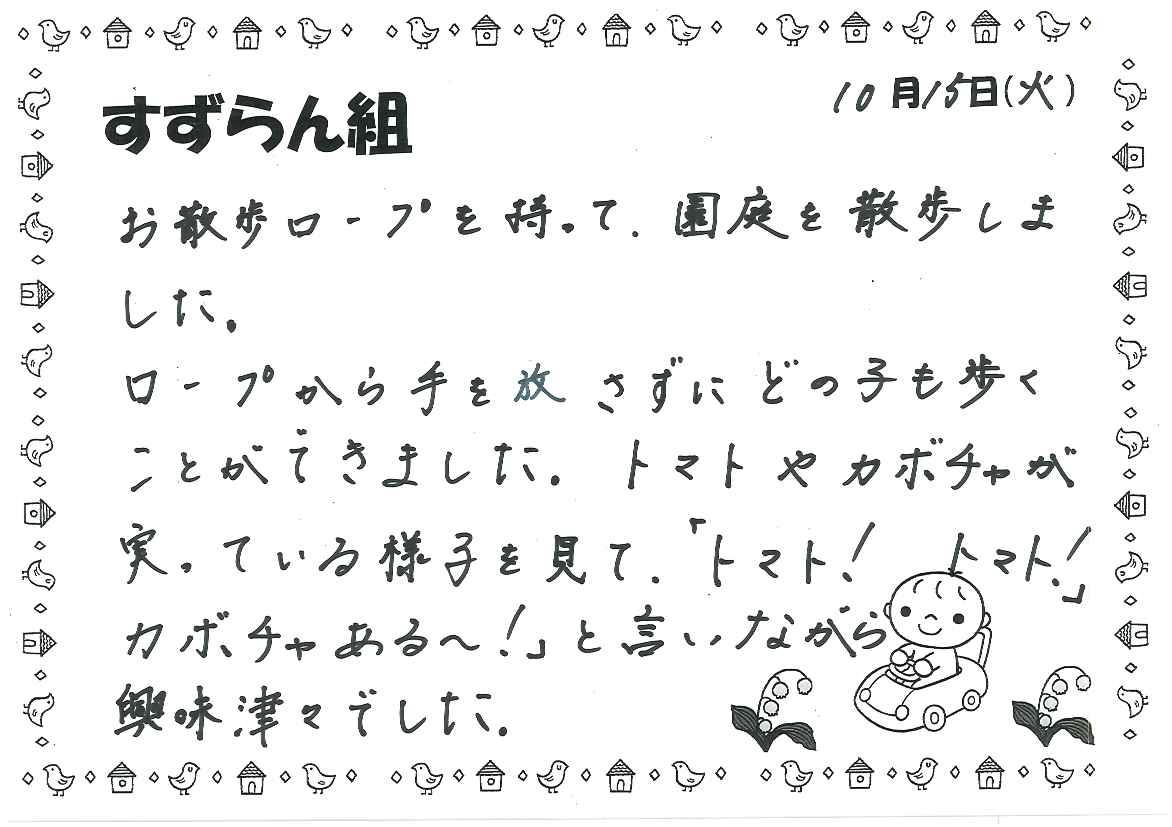 すずらん組
10月15日(火)
お散歩ロープを持って、園庭を散歩しま
した。
ロープから手を放さずにどの子も歩く
ことができました。トマトやカボチャが
実っている様子を見て、「トマト! トマト!」
カボチャある〜!」と言いながら
興味津々でした。